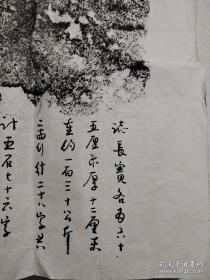 誌長寬各為六十
五厘米厚十二厘米
重約一百三十公斤
二面刻計二十八字共
計五百七十六字